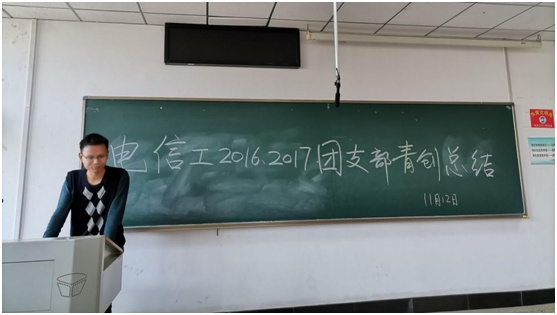 电信工2016.2017团支部青创总结
11月12日